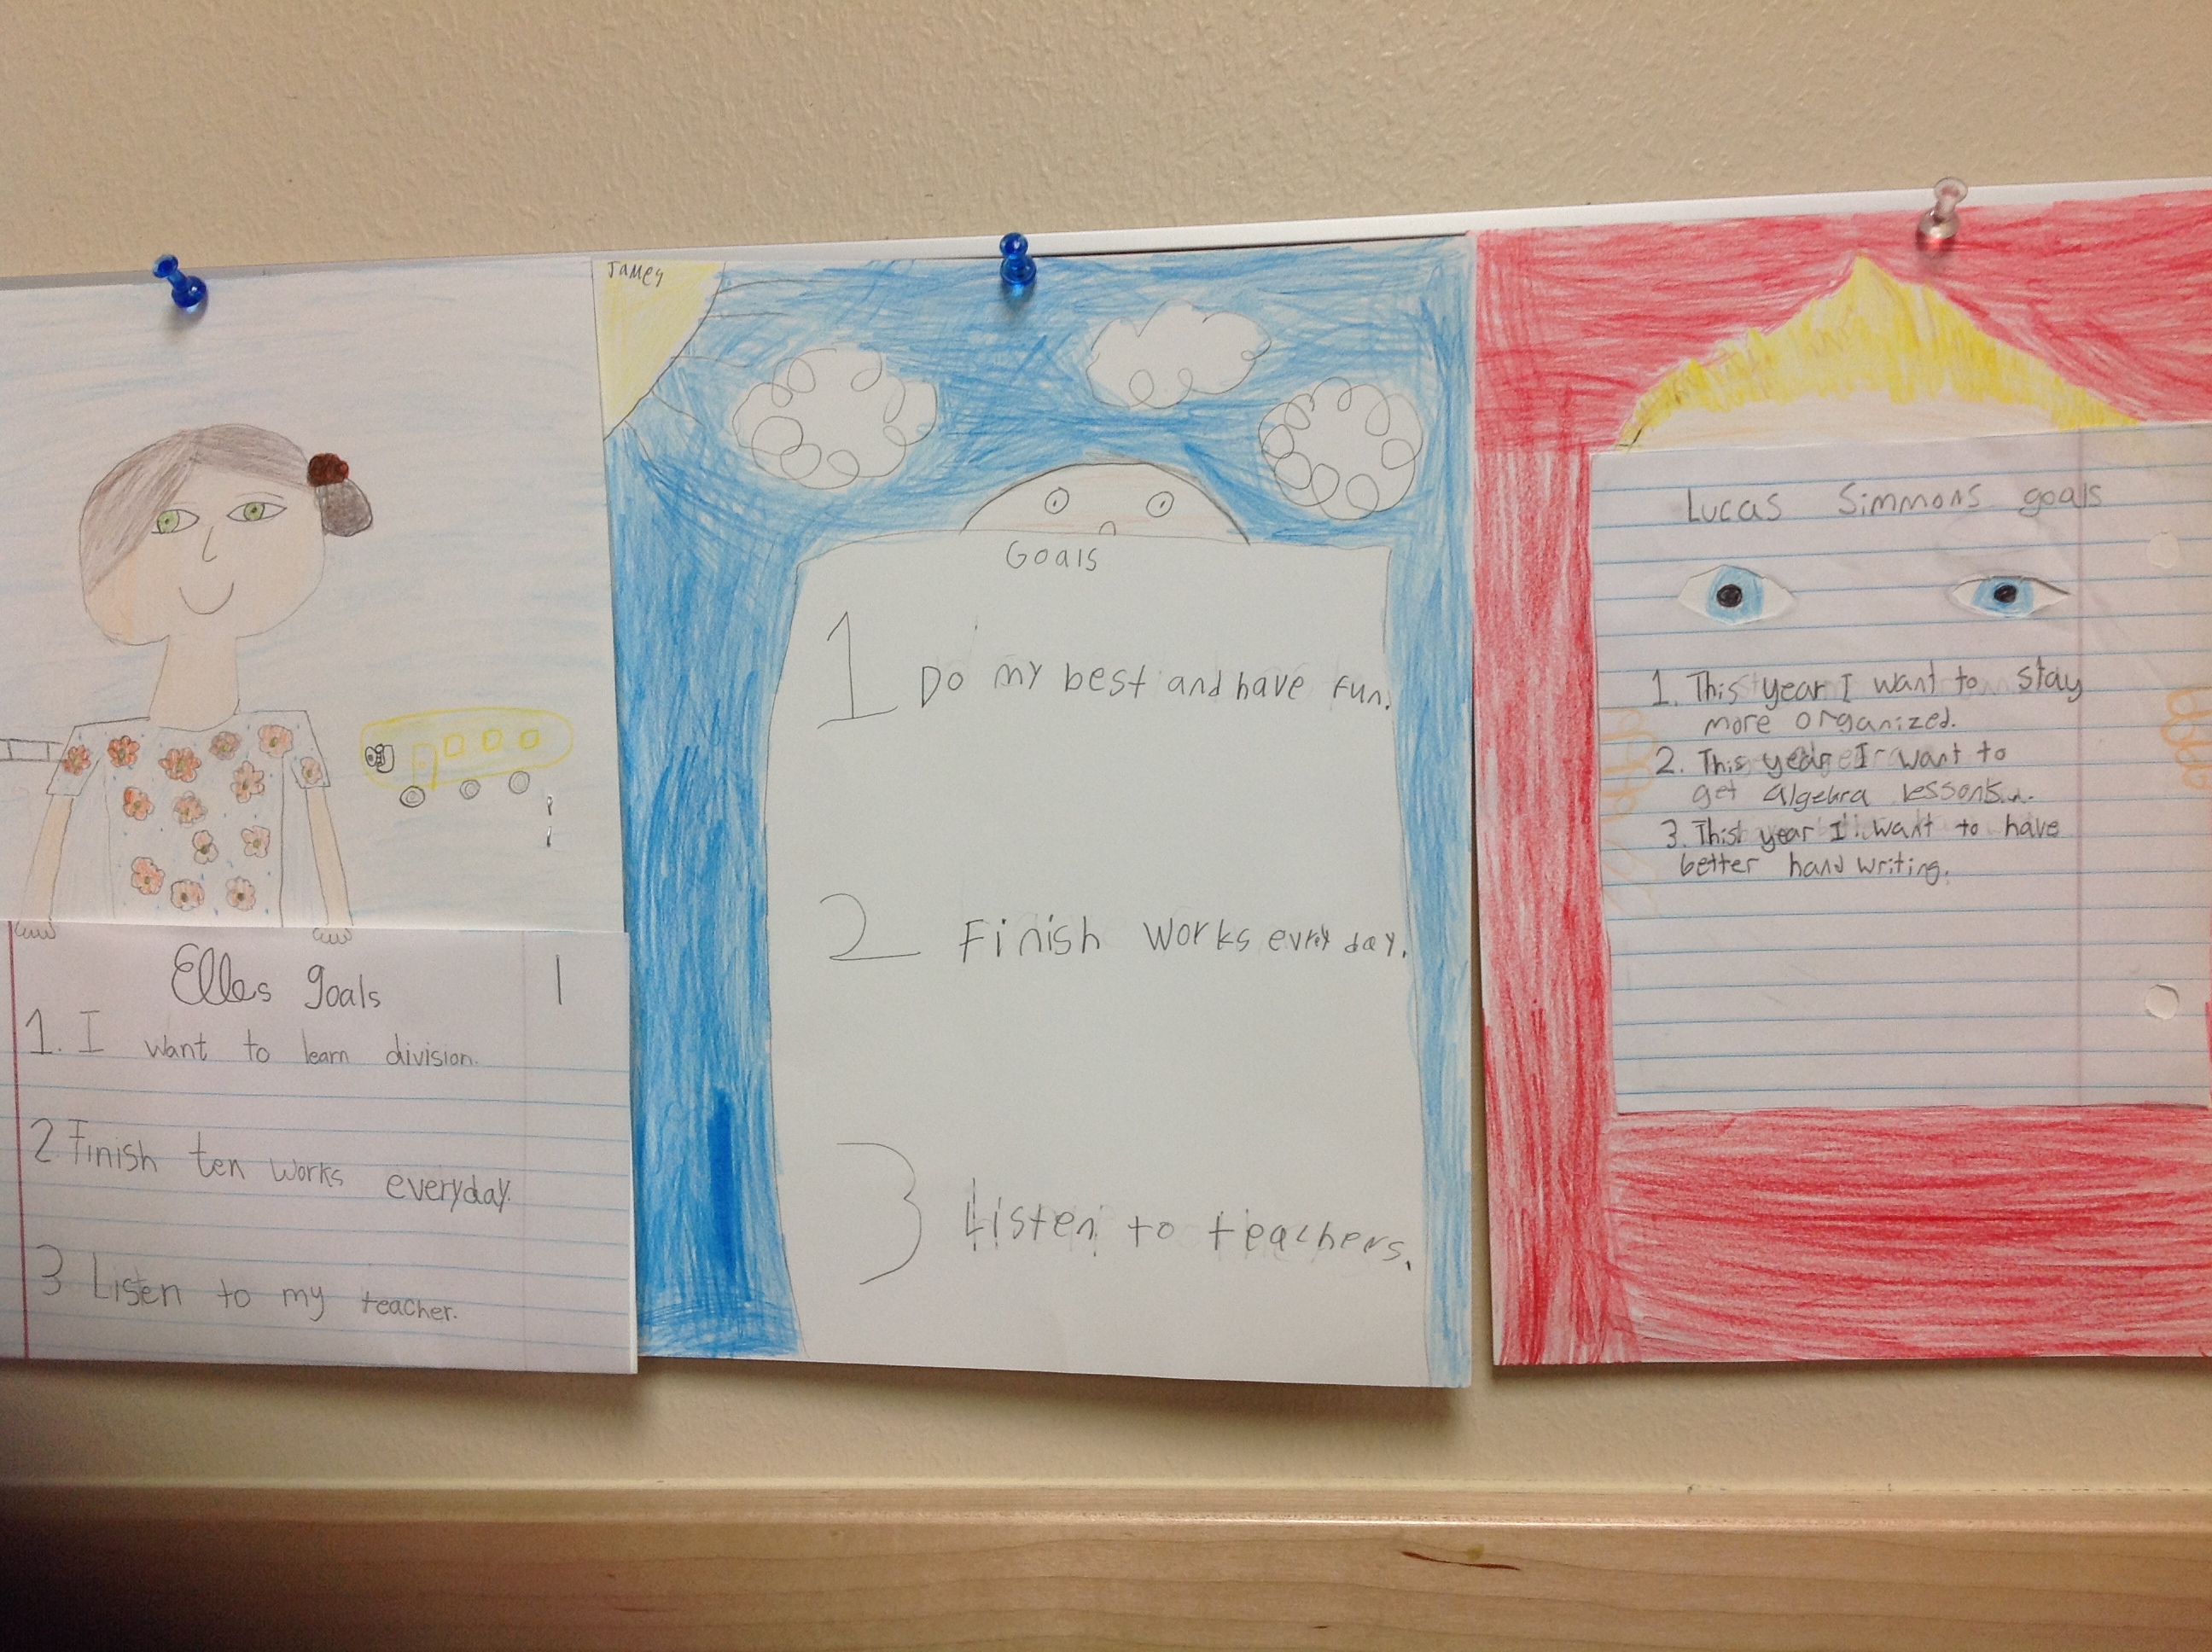 Elles goals
1. I want to learn division.
2 Finish ten works everyday.
3 Listen to my teacher.
James
Goals
1 Do my best and have fun.
2 Finish works every day.
3 Listen to teachers.
Lucas Simmons goals
1. This year I want to stay
more organized.
2. This year I want to
get algebra lessons...
3. This year I want to have
better hand writing.